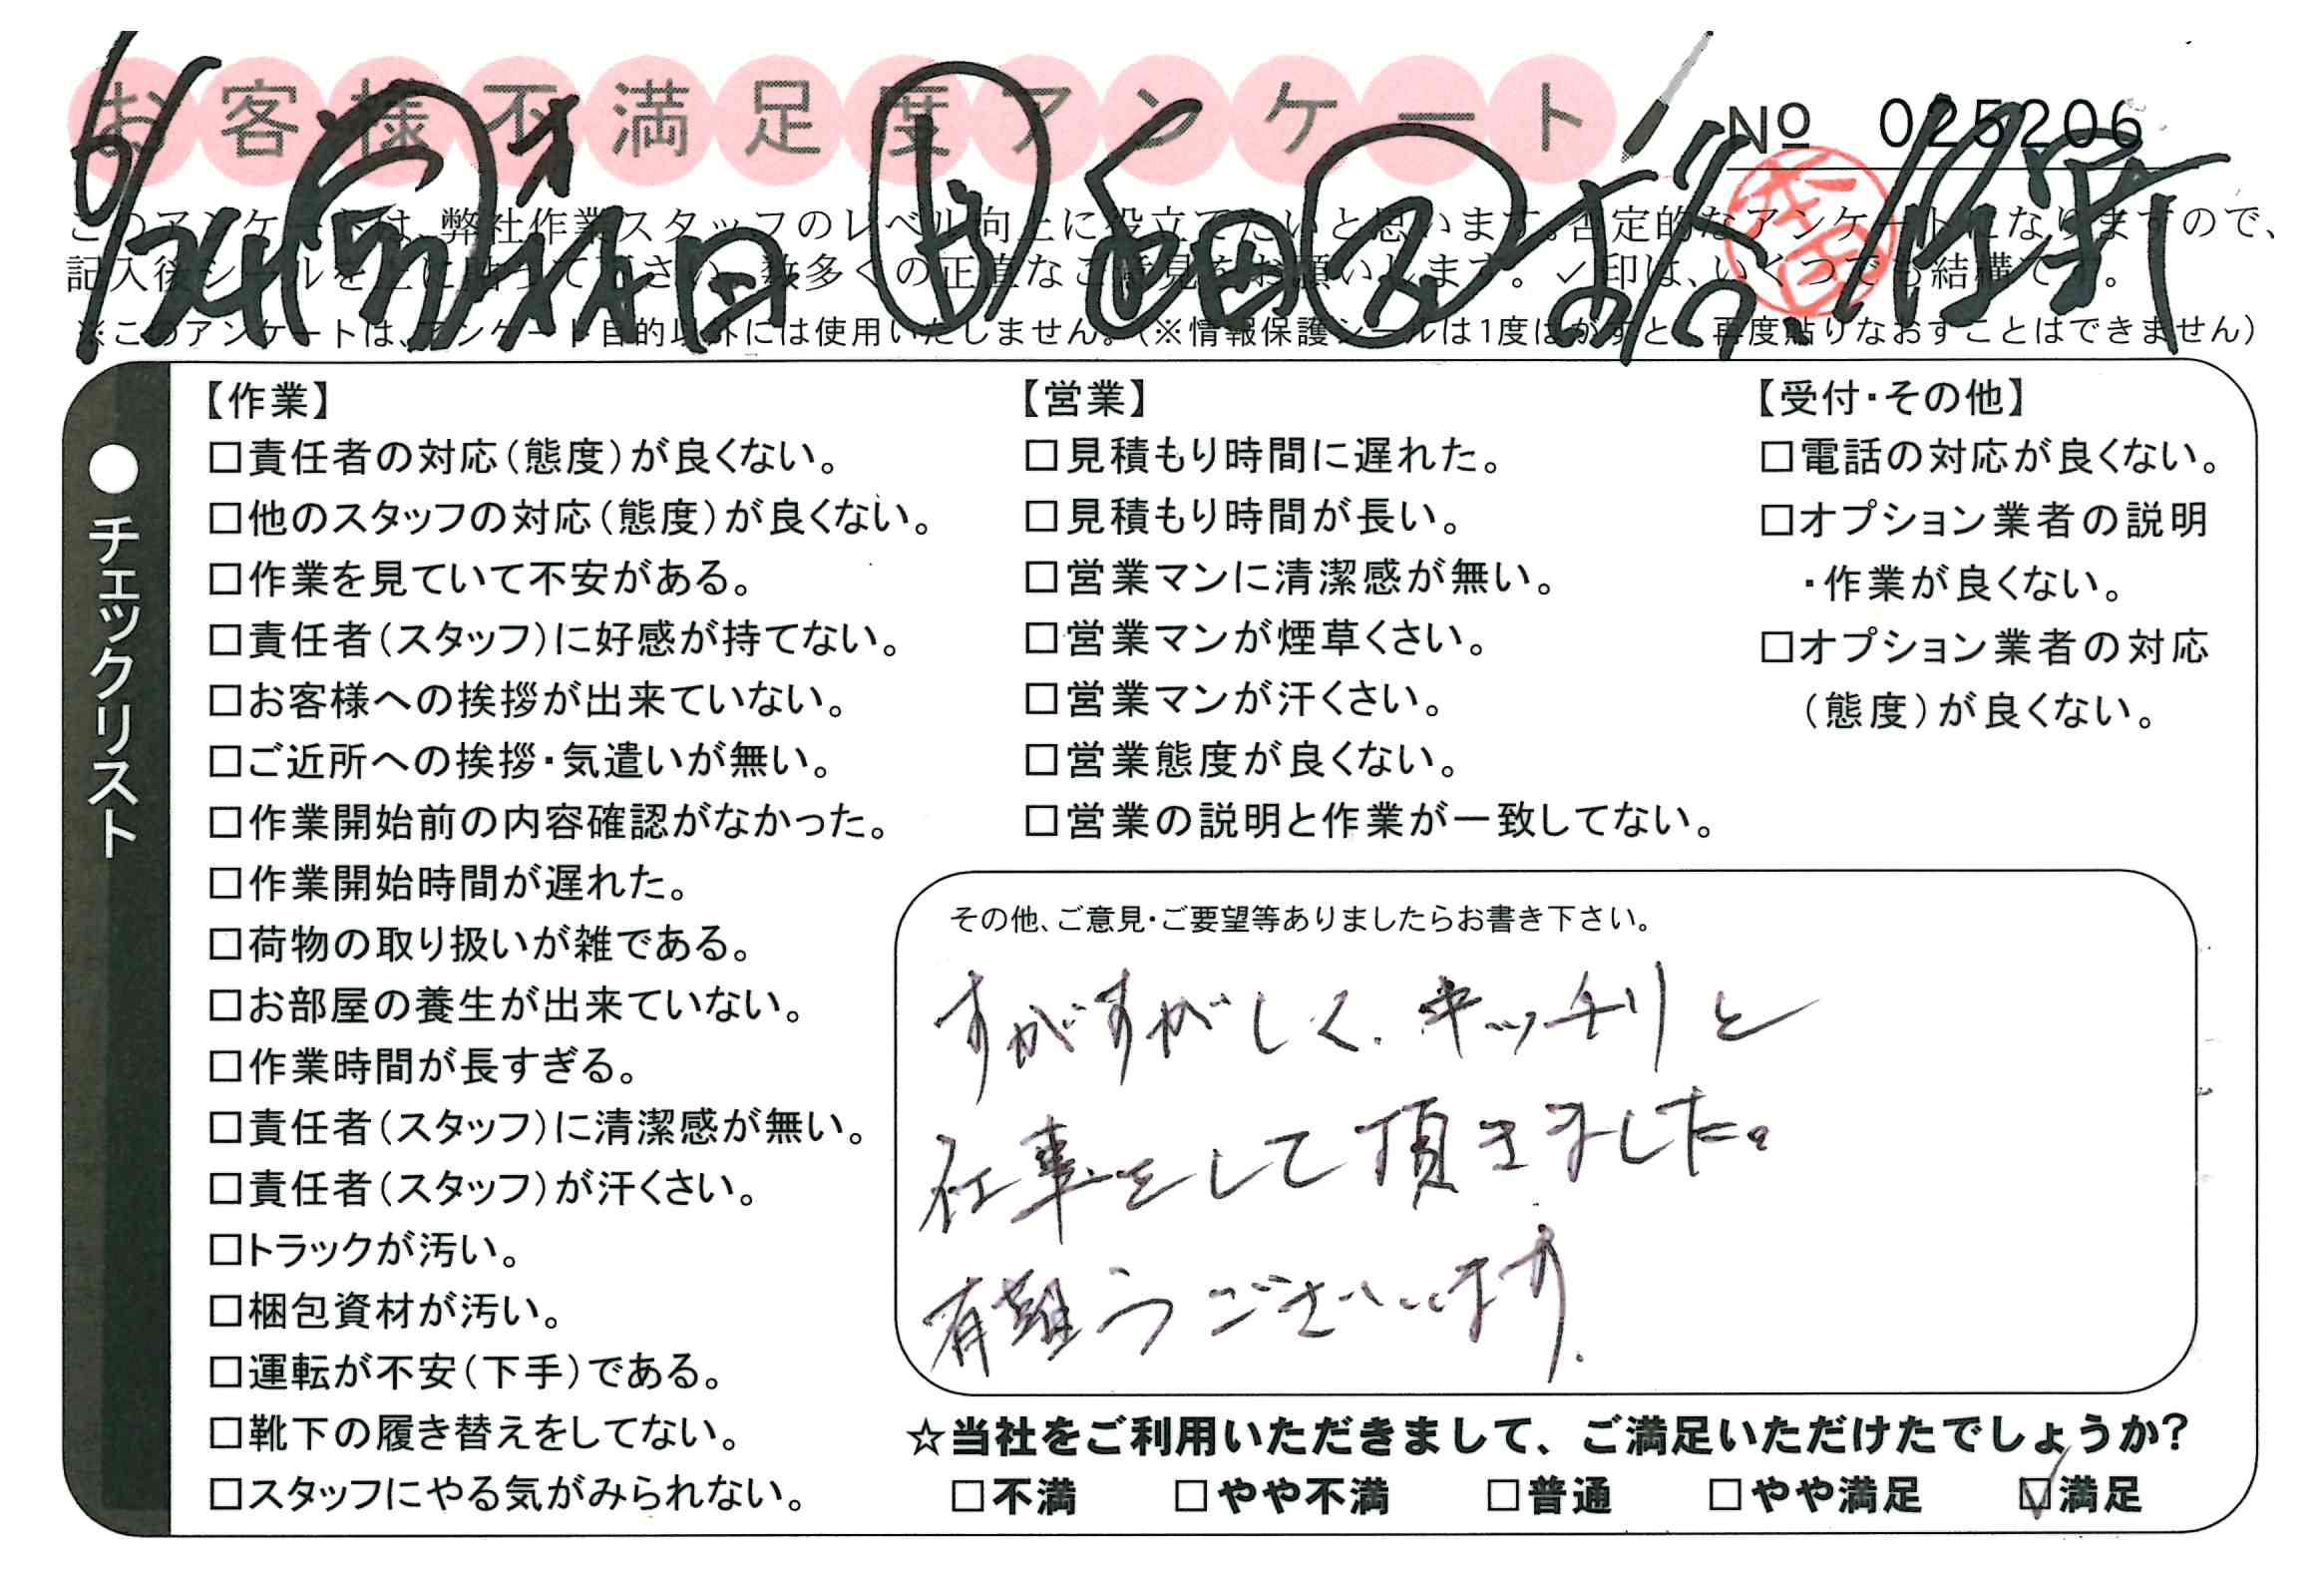 お客様不満足度アンケート
Nº 025206
このアンケートは、弊社作業スタッフのレベル向上に役立てたいと思います。否定的なアンケートになりますので、
記入後シールを上に貼って下さい。数多くの正直なご意見をお願いします。✓印は、いくつでも結構です。
※このアンケートは、アンケート目的以外には使用いたしません。（※情報保護シールは1度はがすと、再度貼りなおすことはできません）
●チェックリスト
【作業】
□責任者の対応（態度）が良くない。
□他のスタッフの対応（態度）が良くない。
□作業を見ていて不安がある。
□責任者（スタッフ）に好感が持てない。
□お客様への挨拶が出来ていない。
□ご近所への挨拶・気遣いが無い。
□作業開始前の内容確認がなかった。
□作業開始時間が遅れた。
□荷物の取り扱いが雑である。
□お部屋の養生が出来ていない。
□作業時間が長すぎる。
□責任者（スタッフ）に清潔感が無い。
□責任者（スタッフ）が汗くさい。
□トラックが汚い。
□梱包資材が汚い。
□運転が不安（下手）である。
□靴下の履き替えをしてない。
□スタッフにやる気がみられない。
【営業】
□見積もり時間に遅れた。
□見積もり時間が長い。
□営業マンに清潔感が無い。
□営業マンが煙草くさい。
□営業マンが汗くさい。
□営業態度が良くない。
□営業の説明と作業が一致してない。
【受付・その他】
□電話の対応が良くない。
□オプション業者の説明
・作業が良くない。
□オプション業者の対応
（態度）が良くない。
その他、ご意見・ご要望等ありましたらお書き下さい。
すがすがしく、キッチリと
仕事をして頂きました。
有難うございます.
☆当社をご利用いただきまして、ご満足いただけたでしょうか？
□不満 □やや不満 □普通 □やや満足 ☑満足